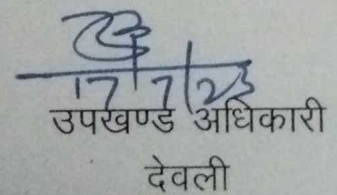 17/7/23
उपखण्ड अधिकारी
देवली